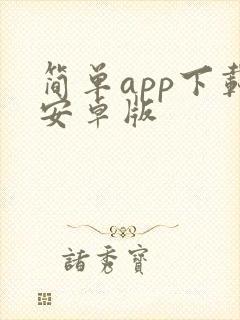 简单app下载
安卓版
诸秀寶